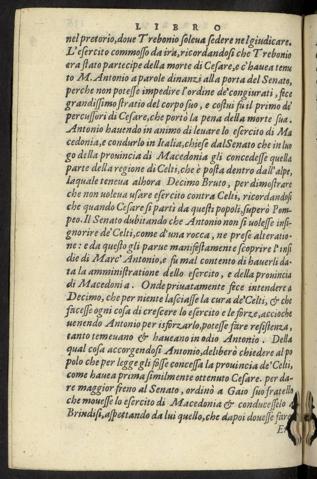 LIBRO
nel pretorio, doue Trebonio soleua sedere nel giudicare.
L'esercito commosso da ira, ricordandosi che Trebonio
era stato partecipe della morte di Cesare, e c'hauea tenu
to M. Antonio a parole dinanzi alla porta del Senato,
perche non potesse impedire l'ordine de' congiurati, fece
grandissimo stratio del corpo suo, e costui fu il primo de'
percussori di Cesare, che portò la pena della morte sua.
Antonio hauendo in animo di leuare lo esercito di Ma
cedonia, e condurlo in Italia, chiese dal Senato che in luo
go della prouincia di Macedonia gli concedesse quella
parte della regione di Celti, che è posta dentro dall'alpe,
laquale teneua alhora Decimo Bruto, per dimostrare
che non uoleua usare esercito contra Celti, ricordandosi
che quando Cesare si parti da questi popoli, superò Pom-
peo. Il Senato dubitando che Antonio non si uolesse insi-
gnorire de' Celti, come d'una rocca, ne prese alteratio-
ne: e da questo gli parue manifestamente scoprire l'insi
die di Marc' Antonio, e fu mal contento di hauerli da-
ta la amministratione dello esercito, e della prouincia
di Macedonia. Onde priuatamente fece intendere a
Decimo, che per niente lasciasse la cura de' Celti, & che
facesse ogni cosa di crescere lo esercito e le forze, accioche
uenendo Antonio per isforzarlo, potesse fare resistenza,
tanto temeuano & haueano in odio Antonio. Della
qual cosa accorgendosi Antonio, deliberò chiedere al po
polo che per legge gli fosse concessa la prouincia de' Celti,
come hauea prima similmente ottenuto Cesare. per da-
re maggior freno al Senato, ordinò a Gaio suo fratello
che mouesse lo esercito di Macedonia & conducesselo a
Brindisi, aspettando da lui quello, che dapoi douesse fare